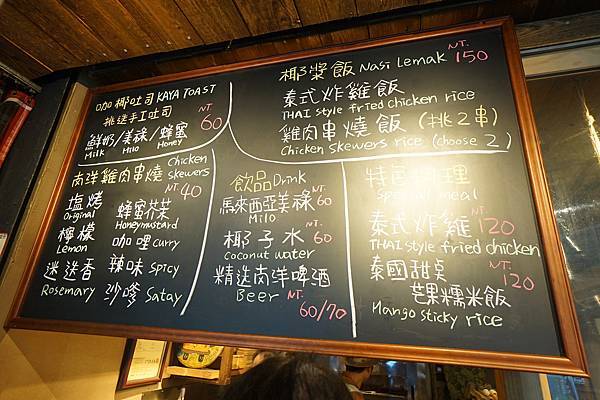 咖椰吐司 KAYA TOAST
挑逸手工吐司
鮮奶/美祿/蜂蜜
Milk Milo Honey
NT. 60
椰漿飯 Nasi Lemak NT. 150
泰式炸雞飯
THAI style fried chicken rice
雞肉串燒飯 (挑2串)
Chicken skewers rice (choose 2)
南洋雞肉串燒 Chicken skewers
NT. 40
塩烤 Original
蜂蜜芥茉 Honeymustard
檸檬 Lemon
咖哩 curry
迷迭香 Rosemary
辣味 spicy
沙嗲 Satay
飲品 Drink
馬來西亞美祿 NT. 60
Milo
椰子水 NT. 60
coconut water
精选南洋啤酒
Beer NT. 60/70
特色料理
Special meal
泰式炸雞 NT. 120
THAI style fried chicken
泰國甜點 NT. 120
芒果糯米飯
Mango sticky rice